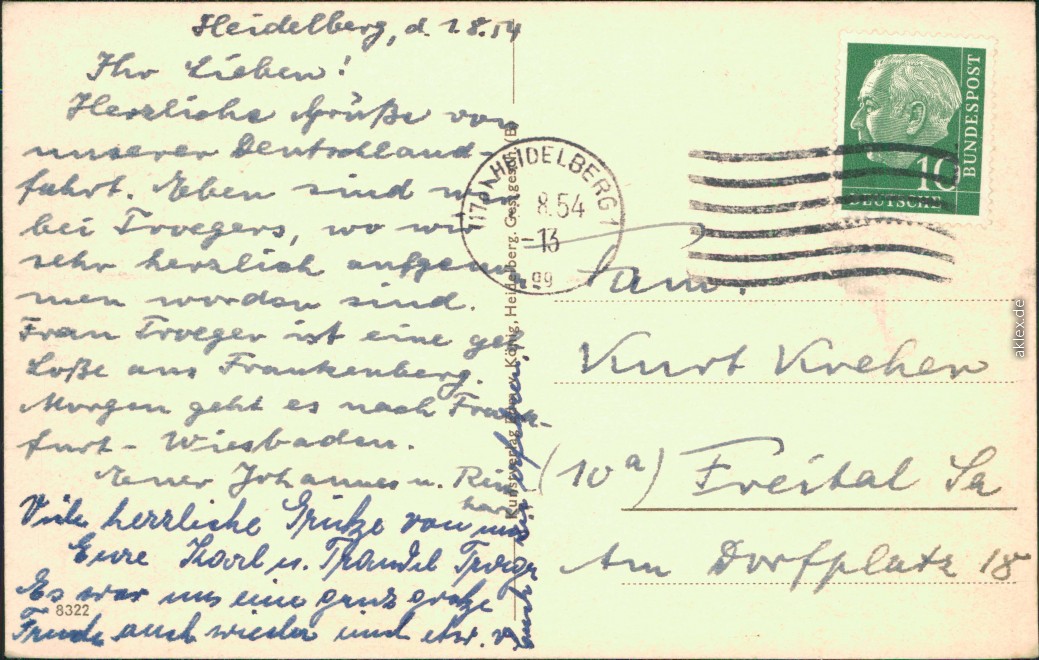 Heidelberg, d. 1.8.54
Ihr Lieben!
Herzliche Grüße von
unserer Deutschland-
fahrt. Eben sind wir
bei Troegers, wo wir
sehr herzlich aufgenom
men worden sind.
Frau Troeger ist eine geb.
Loße aus Frankenberg.
Morgen geht es nach Frank-
furt - Wiesbaden.
Euer Johannes u. Rein
hard
Viele herzliche Grüße von uns
Eure Karl u. Traudel Troeger
Es war uns eine ganz große
Freude auch wieder mal etw. v.
Euch
8322
Kunstverlag König, Heidelberg. Ges. gesch. (B)
HEIDELBERG 1
8.54
-13
BUNDESPOST
10
DEUTSCHE
Fam.
Kurt Kreher
(10a) Freital Sa
Am Dorfplatz 18
aklex.de